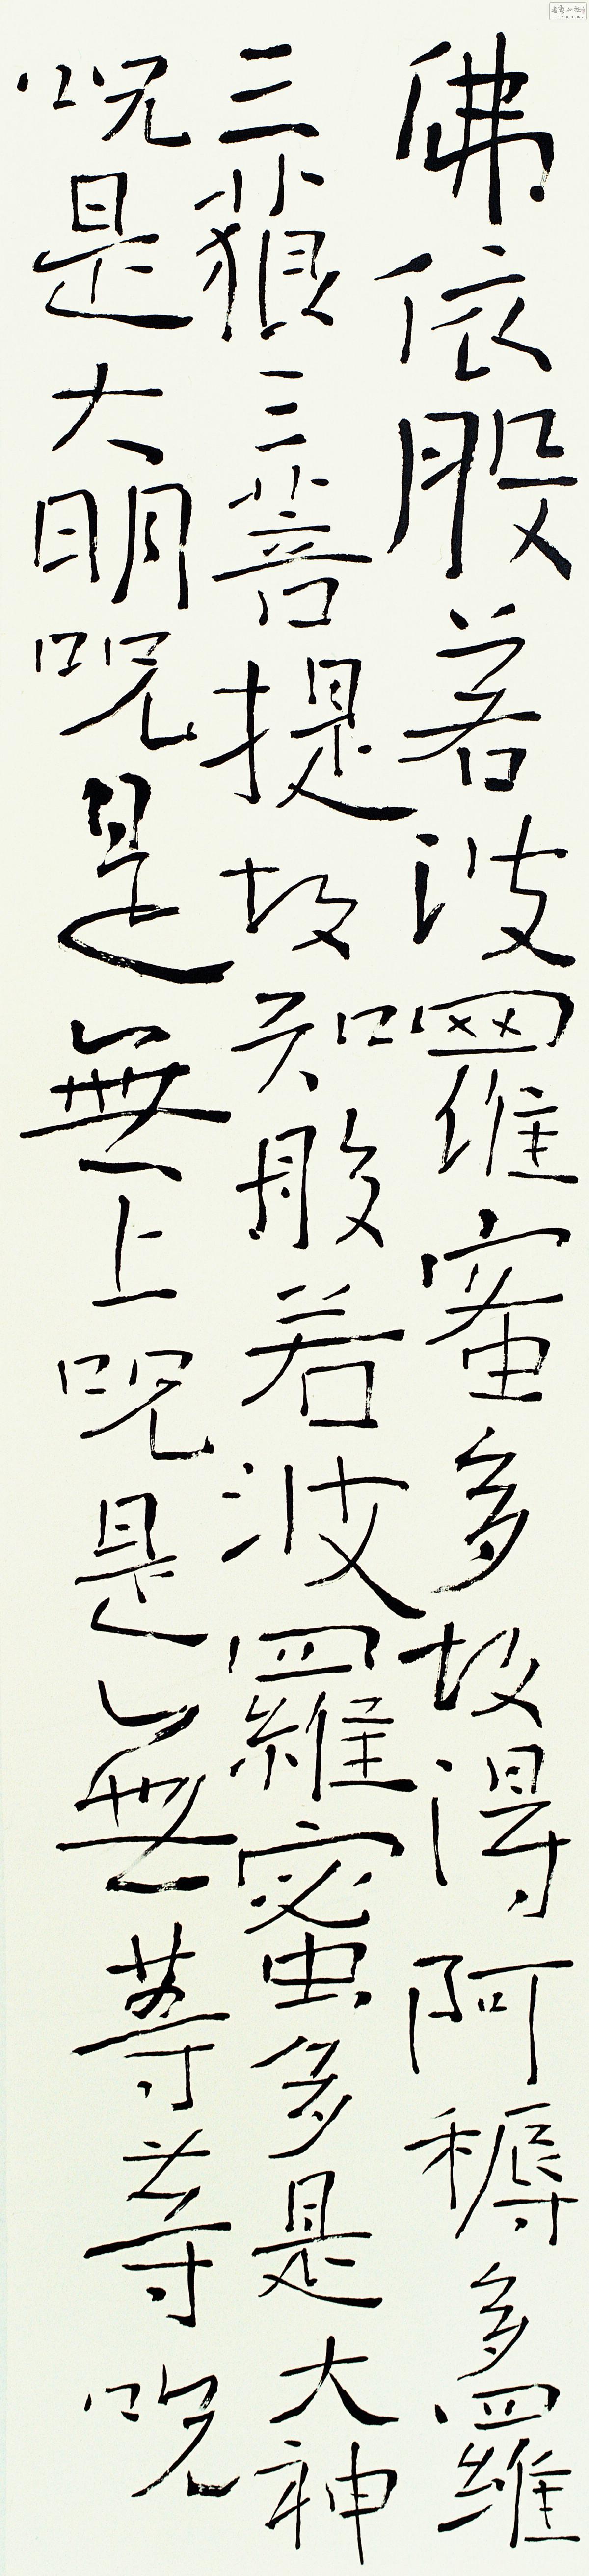 佛依般若波羅蜜多故得阿耨多羅
三藐三菩提故知般若波羅蜜多是大神
呪是大明呪是無上呪是無等等呪